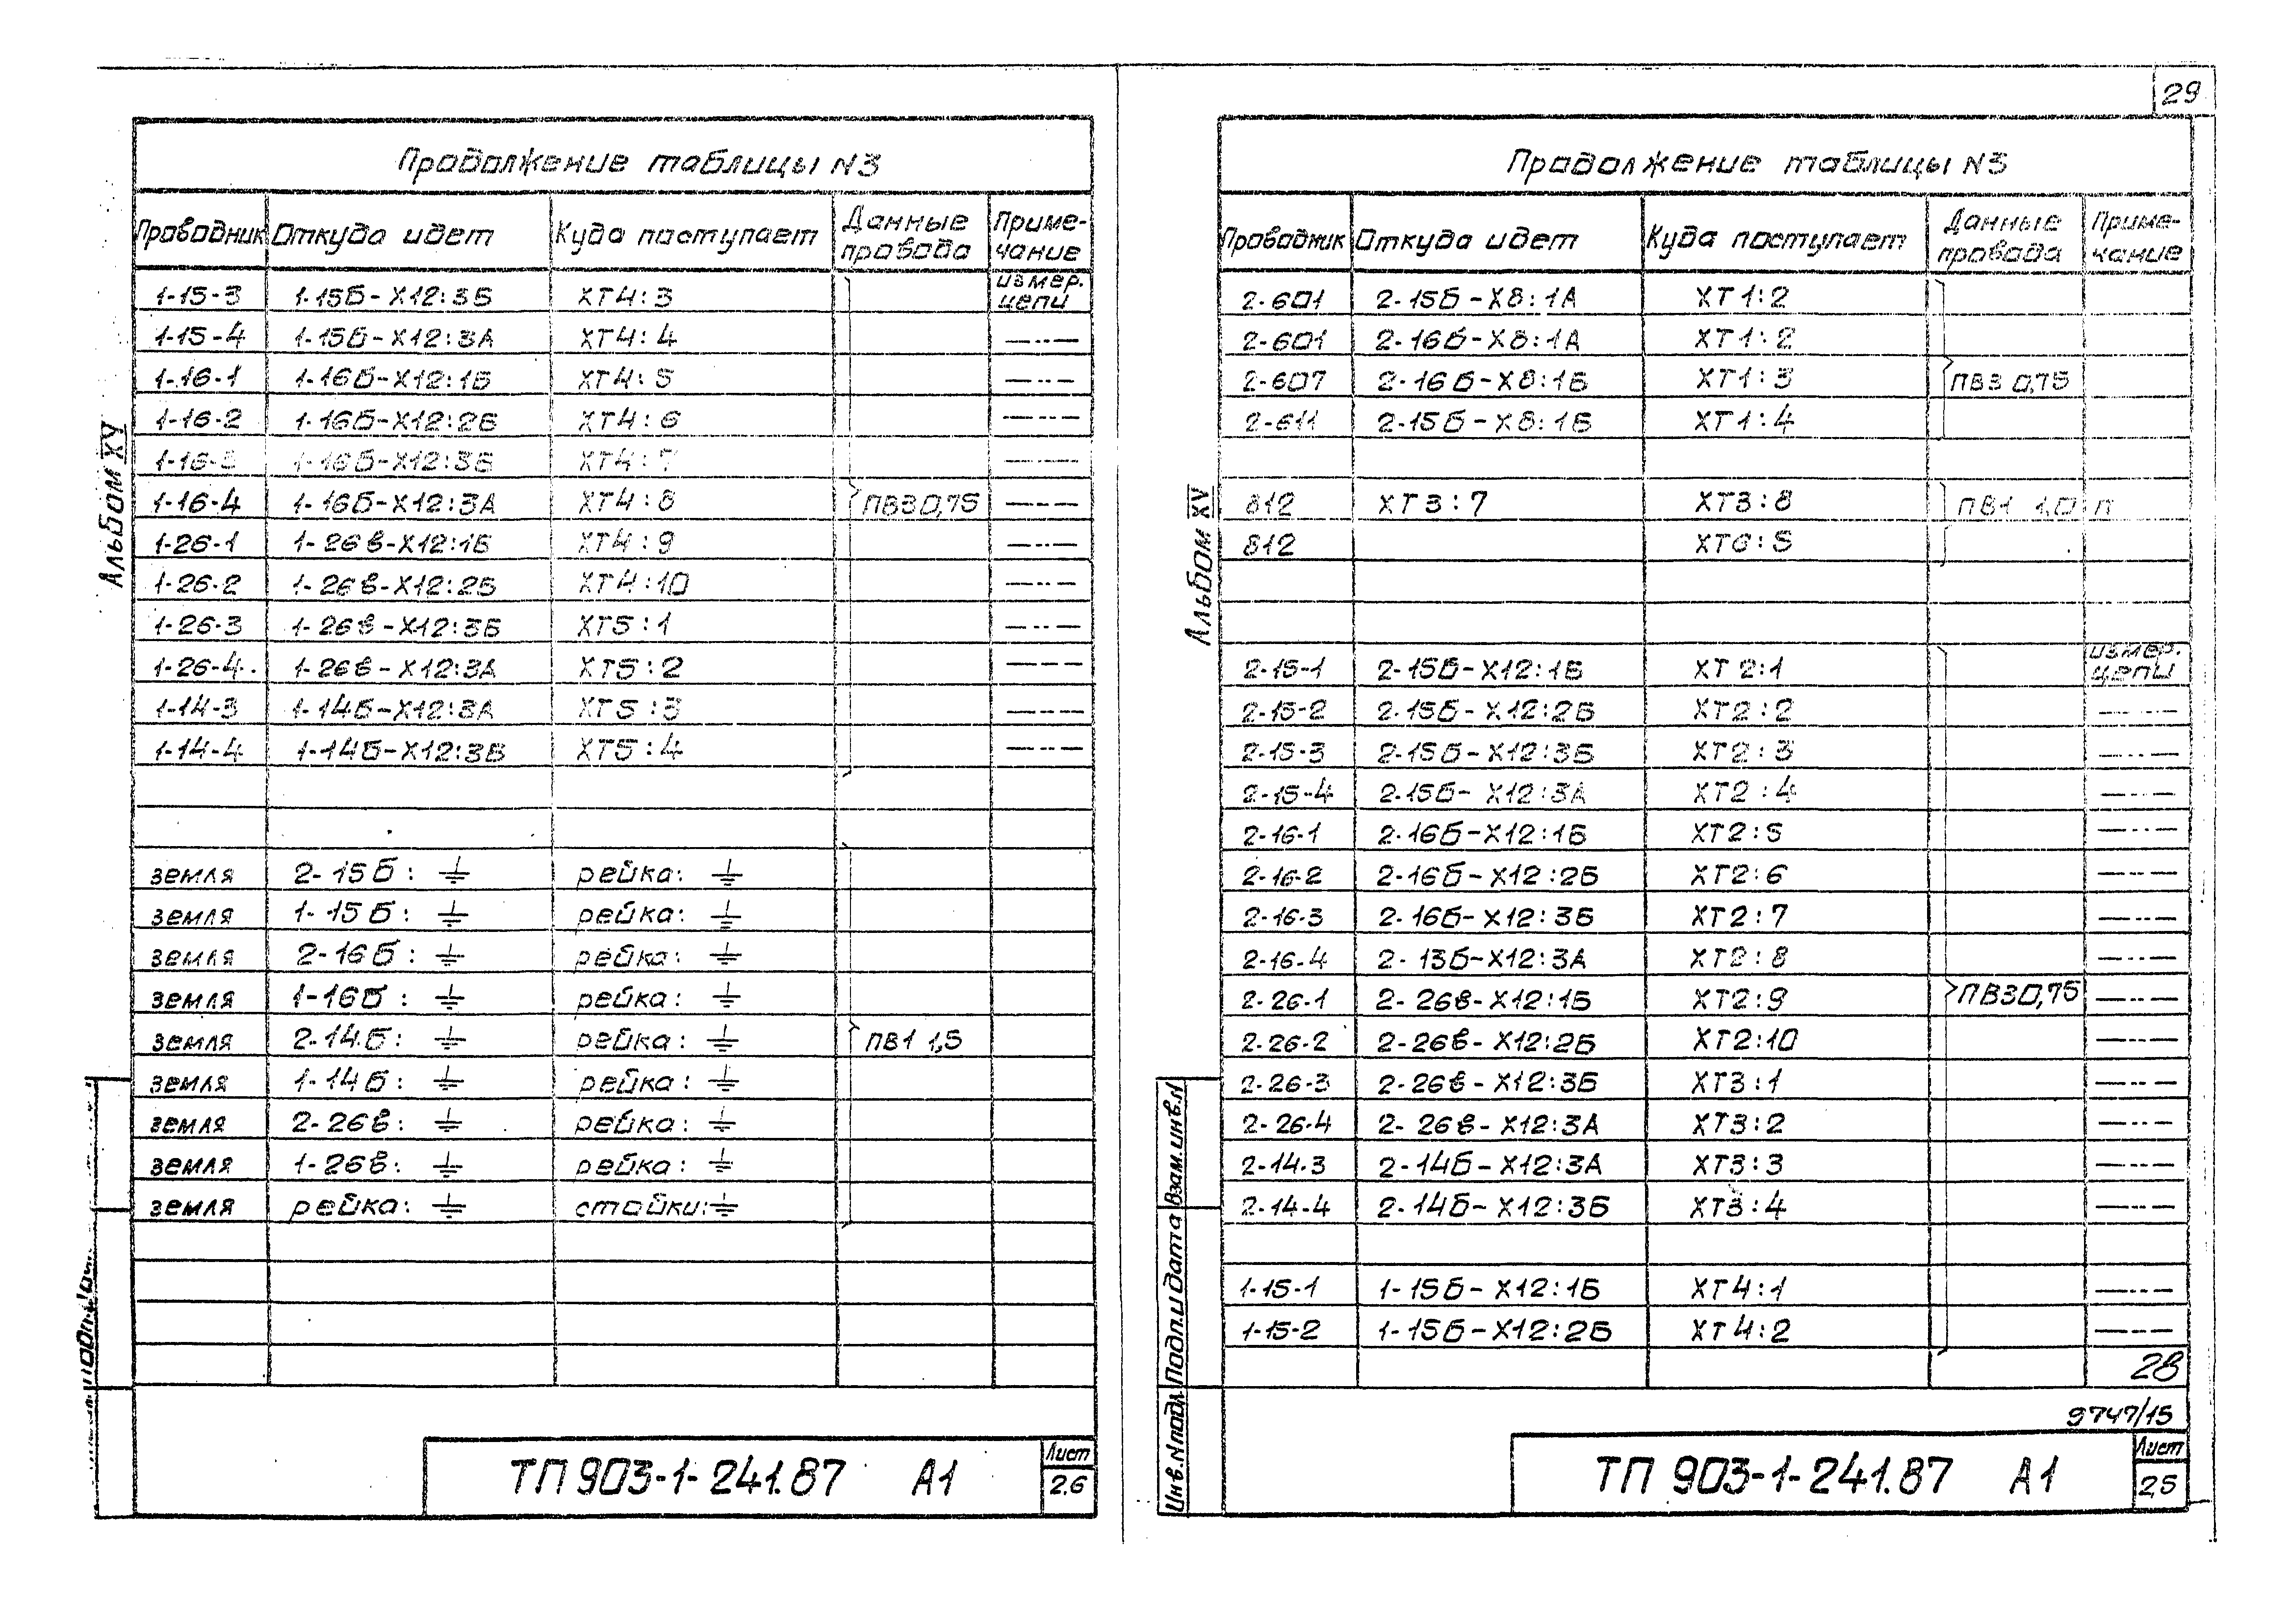 29
Альбом XV
Продолжение таблицы N3
Проводник Откуда идет Куда поступает Данные провода Приме-чание
1-15-3 1-15б-Х12:3Б ХТ4:3 измер. цепи
1-15-4 1-15б-Х12:3А ХТ4:4 —··—
1-16-1 1-16б-Х12:1Б ХТ4:5 —··—
1-16-2 1-16б-Х12:2Б ХТ4:6 —··—
1-16-3 1-16б-Х12:3Б ХТ4:7 —··—
1-16-4 1-16б-Х12:3А ХТ4:8 ПВ3 0,75 —··—
1-26-1 1-26в-Х12:1Б ХТ4:9 —··—
1-26-2 1-26в-Х12:2Б ХТ4:10 —··—
1-26-3 1-26в-Х12:3Б ХТ5:1 —··—
1-26-4 1-26в-Х12:3А ХТ5:2 —··—
1-14-3 1-14б-Х12:3А ХТ5:3 —··—
1-14-4 1-14б-Х12:3Б ХТ5:4 —··—
земля 2-15б: ⏚ рейка: ⏚
земля 1-15б: ⏚ рейка: ⏚
земля 2-16б: ⏚ рейка: ⏚
земля 1-16б: ⏚ рейка: ⏚
земля 2-14б: ⏚ рейка: ⏚ ПВ1 1,5
земля 1-14б: ⏚ рейка: ⏚
земля 2-26в: ⏚ рейка: ⏚
земля 1-26в: ⏚ рейка: ⏚
земля рейка: ⏚ стойки: ⏚
ТП 903-1-241.87 А1
Лист
2.6
Альбом XV
Продолжение таблицы N3
Проводник Откуда идет Куда поступает Данные провода Приме-чание
2-601 2-15б-Х8:1А ХТ1:2
2-601 2-16б-Х8:1А ХТ1:2
2-607 2-16б-Х8:1Б ХТ1:3 ПВ3 0,75
2-611 2-15б-Х8:1Б ХТ1:4
812 ХТ3:7 ХТ3:8 ПВ1 1,0 п
812 ХТ6:5
2-15-1 2-15б-Х12:1Б ХТ2:1 измер. цепи
2-15-2 2-15б-Х12:2Б ХТ2:2 —··—
2-15-3 2-15б-Х12:3Б ХТ2:3 —··—
2-15-4 2-15б-Х12:3А ХТ2:4 —··—
2-16-1 2-16б-Х12:1Б ХТ2:5 —··—
2-16-2 2-16б-Х12:2Б ХТ2:6 —··—
2-16-3 2-16б-Х12:3Б ХТ2:7 —··—
2-16-4 2-13б-Х12:3А ХТ2:8 —··—
2-26-1 2-26в-Х12:1Б ХТ2:9 ПВ3 0,75 —··—
2-26-2 2-26в-Х12:2Б ХТ2:10 —··—
2-26-3 2-26в-Х12:3Б ХТ3:1 —··—
2-26-4 2-26в-Х12:3А ХТ3:2 —··—
2-14-3 2-14б-Х12:3А ХТ3:3 —··—
2-14-4 2-14б-Х12:3Б ХТ3:4 —··—
1-15-1 1-15б-Х12:1Б ХТ4:1 —··—
1-15-2 1-15б-Х12:2Б ХТ4:2 —··—
28
9747/15
Инв.N подл. Подп. и дата Взам.инв.N
ТП 903-1-241.87 А1
Лист
2,5